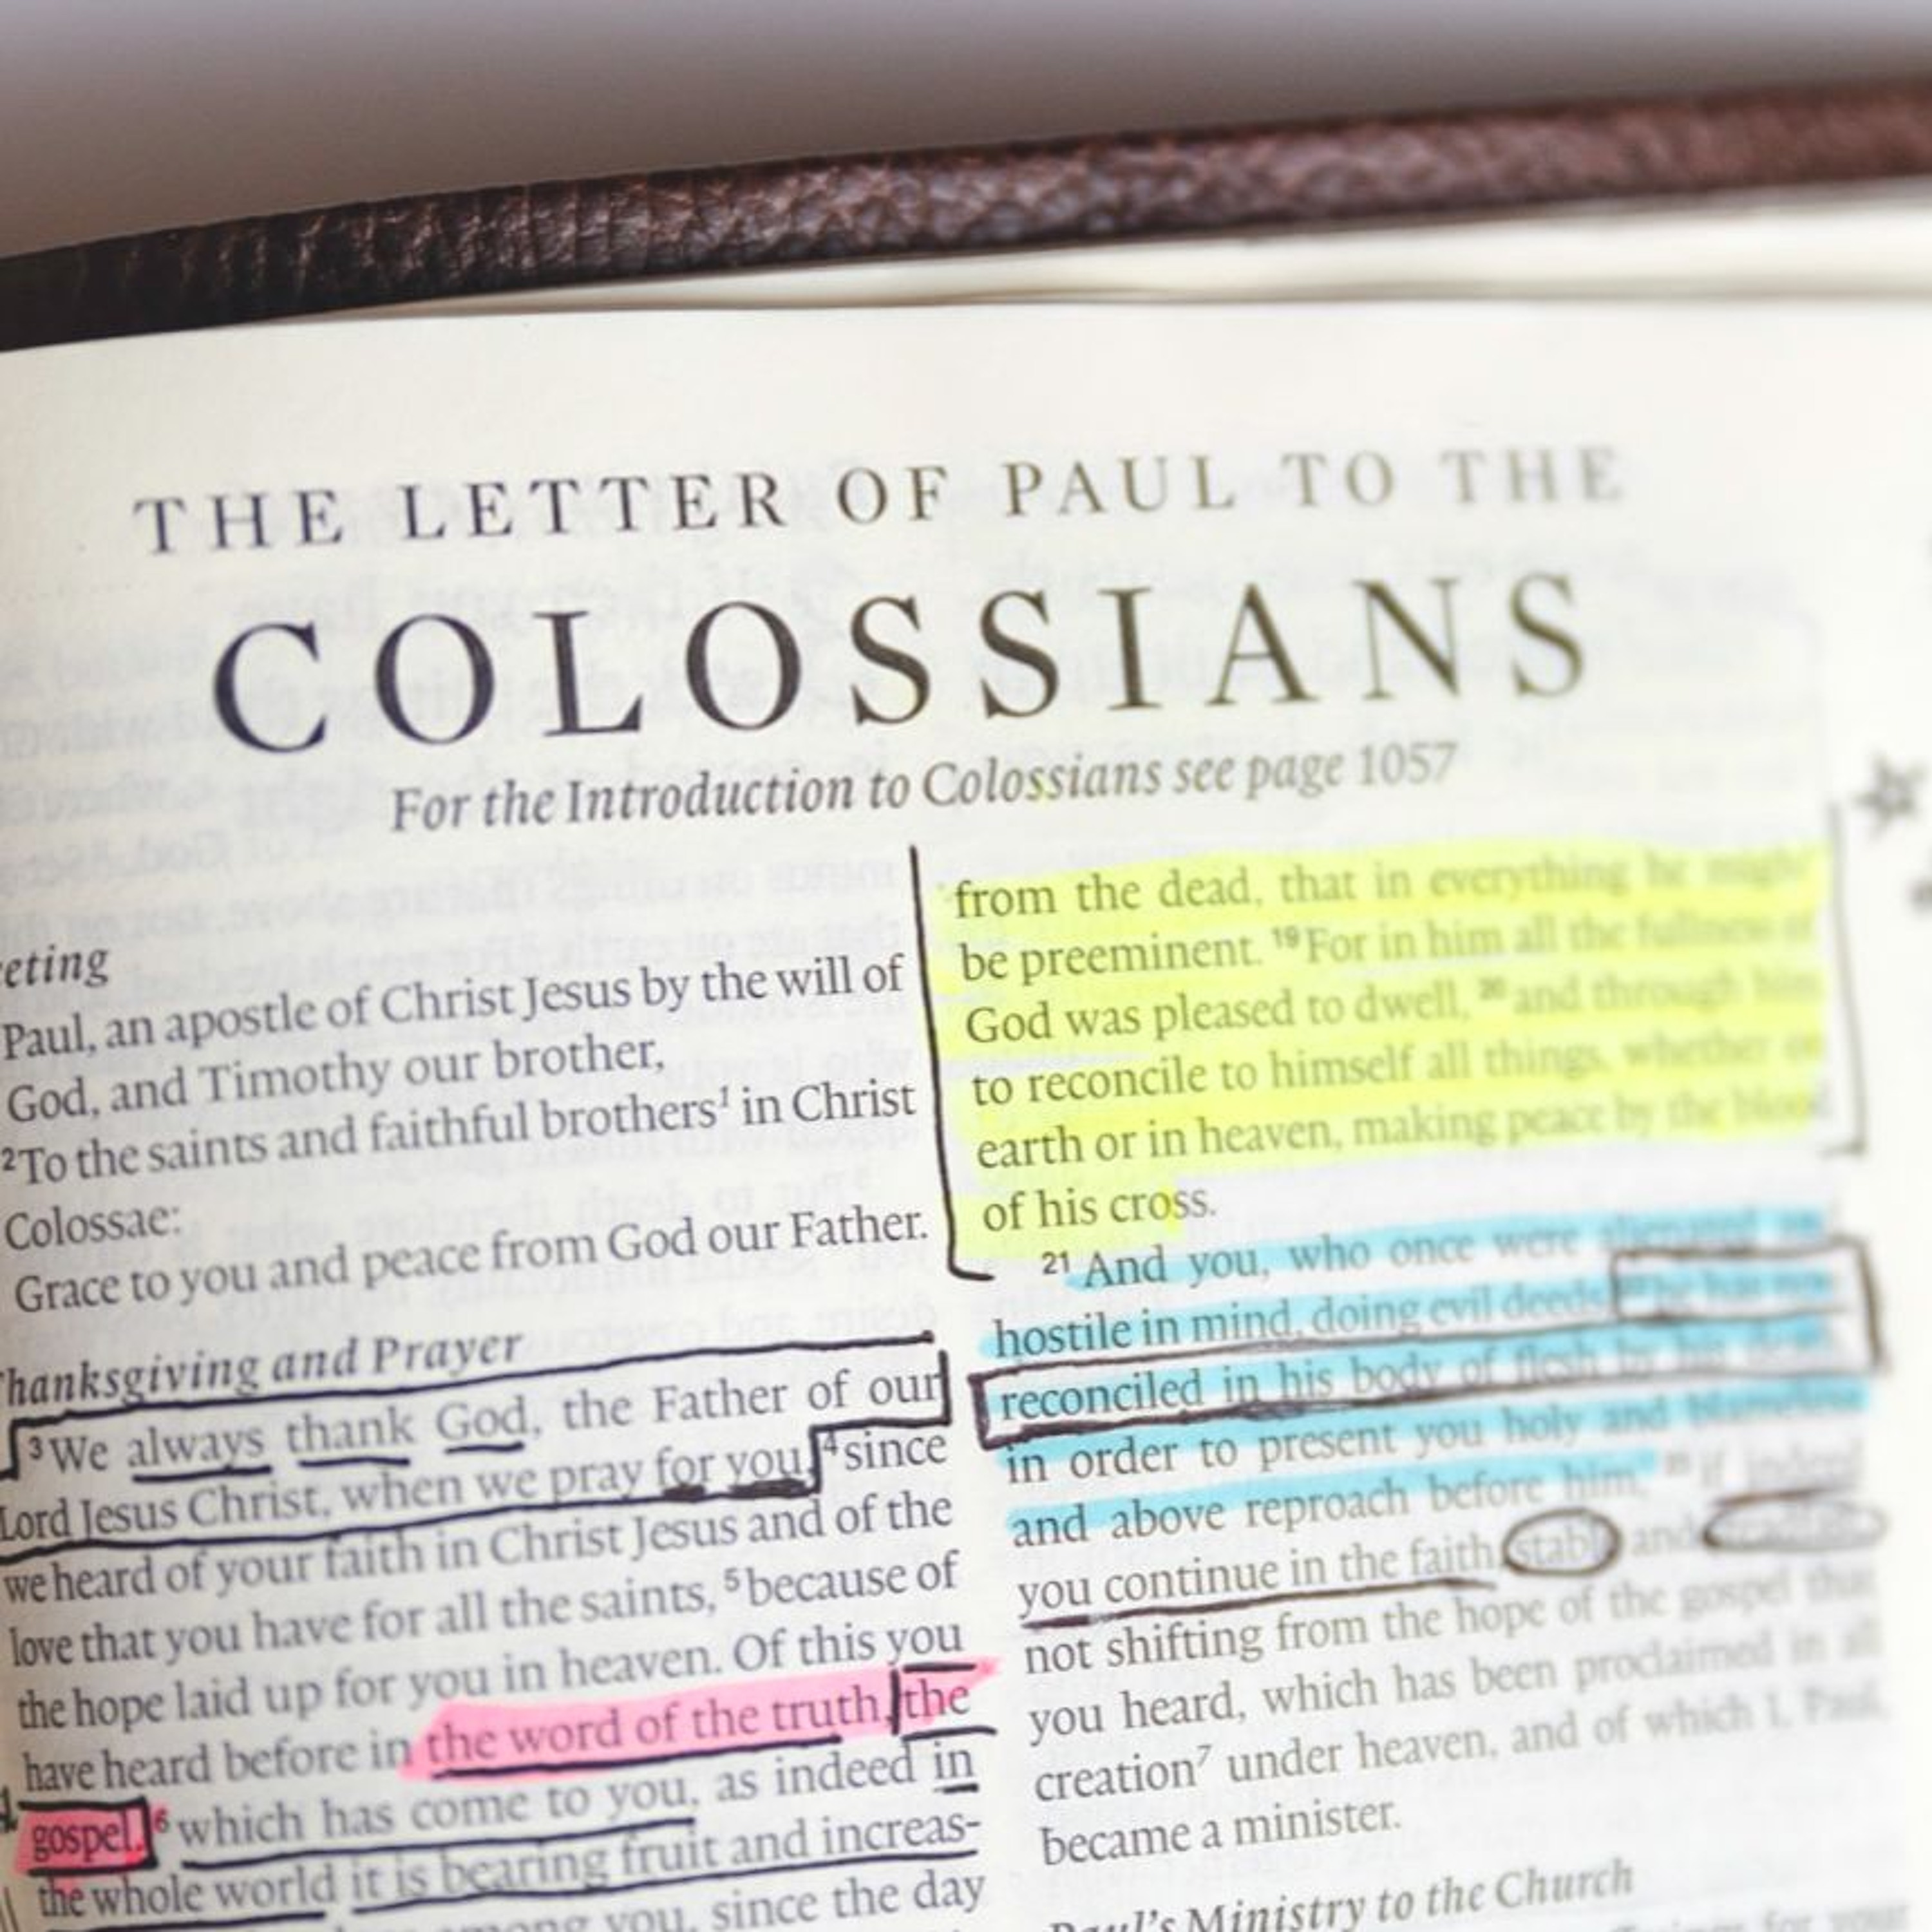 THE LETTER OF PAUL TO THE
COLOSSIANS
For the Introduction to Colossians see page 1057
eting
Paul, an apostle of Christ Jesus by the will of
God, and Timothy our brother,
2 To the saints and faithful brothers1 in Christ
Colossae:
Grace to you and peace from God our Father.
hanksgiving and Prayer
3 We always thank God, the Father of our
Lord Jesus Christ, when we pray for you, 4 since
we heard of your faith in Christ Jesus and of the
love that you have for all the saints, 5 because of
the hope laid up for you in heaven. Of this you
have heard before in the word of the truth, the
gospel, 6 which has come to you, as indeed in
the whole world it is bearing fruit and increas-
among you, since the day
from the dead, that in everything he might
be preeminent. 19 For in him all the fullness of
God was pleased to dwell, 20 and through him
to reconcile to himself all things, whether on
earth or in heaven, making peace by the blood
of his cross.
21 And you, who once were alienated and
hostile in mind, doing evil deeds, 22 he has now
reconciled in his body of flesh by his death,
in order to present you holy and blameless
and above reproach before him, 23 if indeed
you continue in the faith, stable and
not shifting from the hope of the gospel that
you heard, which has been proclaimed in all
creation7 under heaven, and of which I, Paul,
became a minister.
Paul's Ministry to the Church